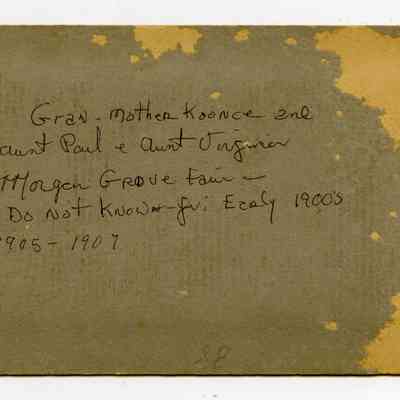 Gran-mother Koonce and
aunt Paul & aunt Virginia
Morgan Grove Fair -
Do Not Know yr: Ecaly 1900's
1905-1907
38